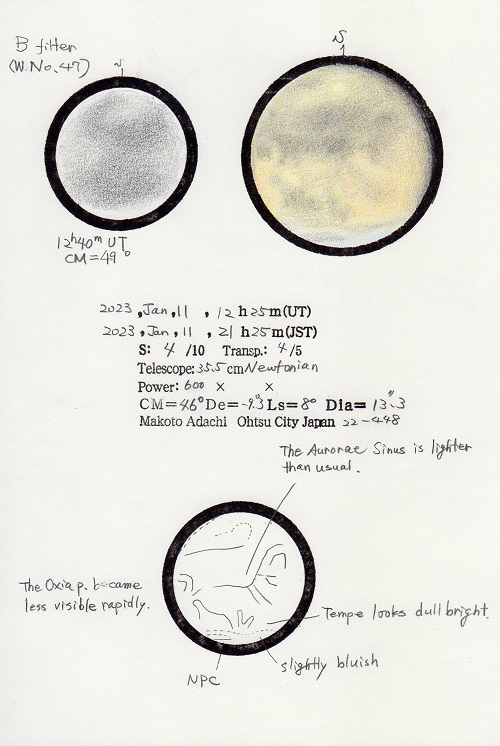 B filter
(W.No.47)
S
S
12h40m UT
CM=49°
2023,Jan,11 , 12 h 25 m(UT)
2023,Jan,11 , 21 h 25 m(JST)
S: 4 /10 Transp.: 4/5
Telescope: 35.5 cm Newtonian
Power: 600 × ×
CM=46° De=-9.°3 Ls=8° Dia=13."3
Makoto Adachi Ohtsu City Japan 22-448
The Aurorae Sinus is lighter
than usual.
The Oxia p. became
less visible rapidly.
Tempe looks dull bright.
slightly bluish
NPC